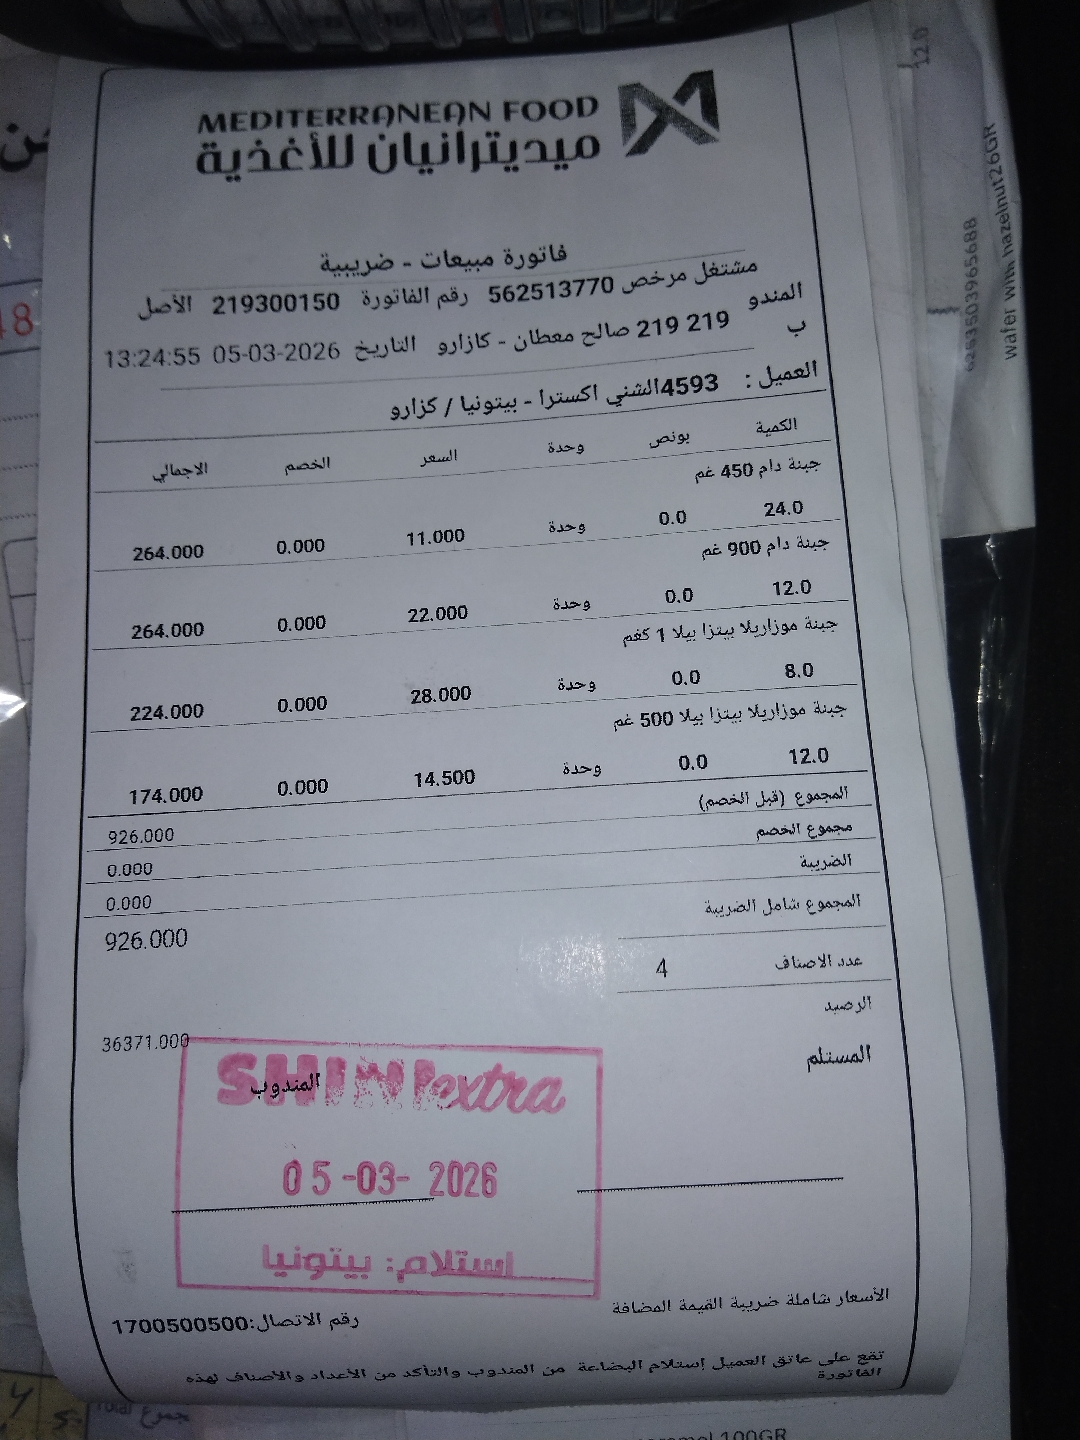 MEDITERRANEAN FOOD
ميديترانيان للأغذية
فاتورة مبيعات - ضريبية
مشتغل مرخص 562513770 رقم الفاتورة 219300150 الأصل
المندوب 219 219 صالح معطان - كازارو التاريخ 05-03-2026 13:24:55
العميل : 4593الشني اكسترا - بيتونيا / كزارو
الكمية بونص وحدة السعر الخصم الاجمالي
جبنة دام 450 غم
24.0 0.0 وحدة 11.000 0.000 264.000
جبنة دام 900 غم
12.0 0.0 وحدة 22.000 0.000 264.000
جبنة موزاريلا بيتزا بيلا 1 كغم
8.0 0.0 وحدة 28.000 0.000 224.000
جبنة موزاريلا بيتزا بيلا 500 غم
12.0 0.0 وحدة 14.500 0.000 174.000
المجموع (قبل الخصم) 926.000
مجموع الخصم 0.000
الضريبة 0.000
المجموع شامل الضريبة 926.000
عدد الاصناف 4
الرصيد 36371.000
المستلم المندوب
SHINI extra
05-03-2026
إستلام: بيتونيا
الأسعار شاملة ضريبة القيمة المضافة
رقم الاتصال:1700500500
تقع على عاتق العميل إستلام البضاعة من المندوب والتأكد من الأعداد والأصناف لهذه
الفاتورة
12.0
6253503965688
wafer with hazelnut26GR
48
Total مجموع
100GR